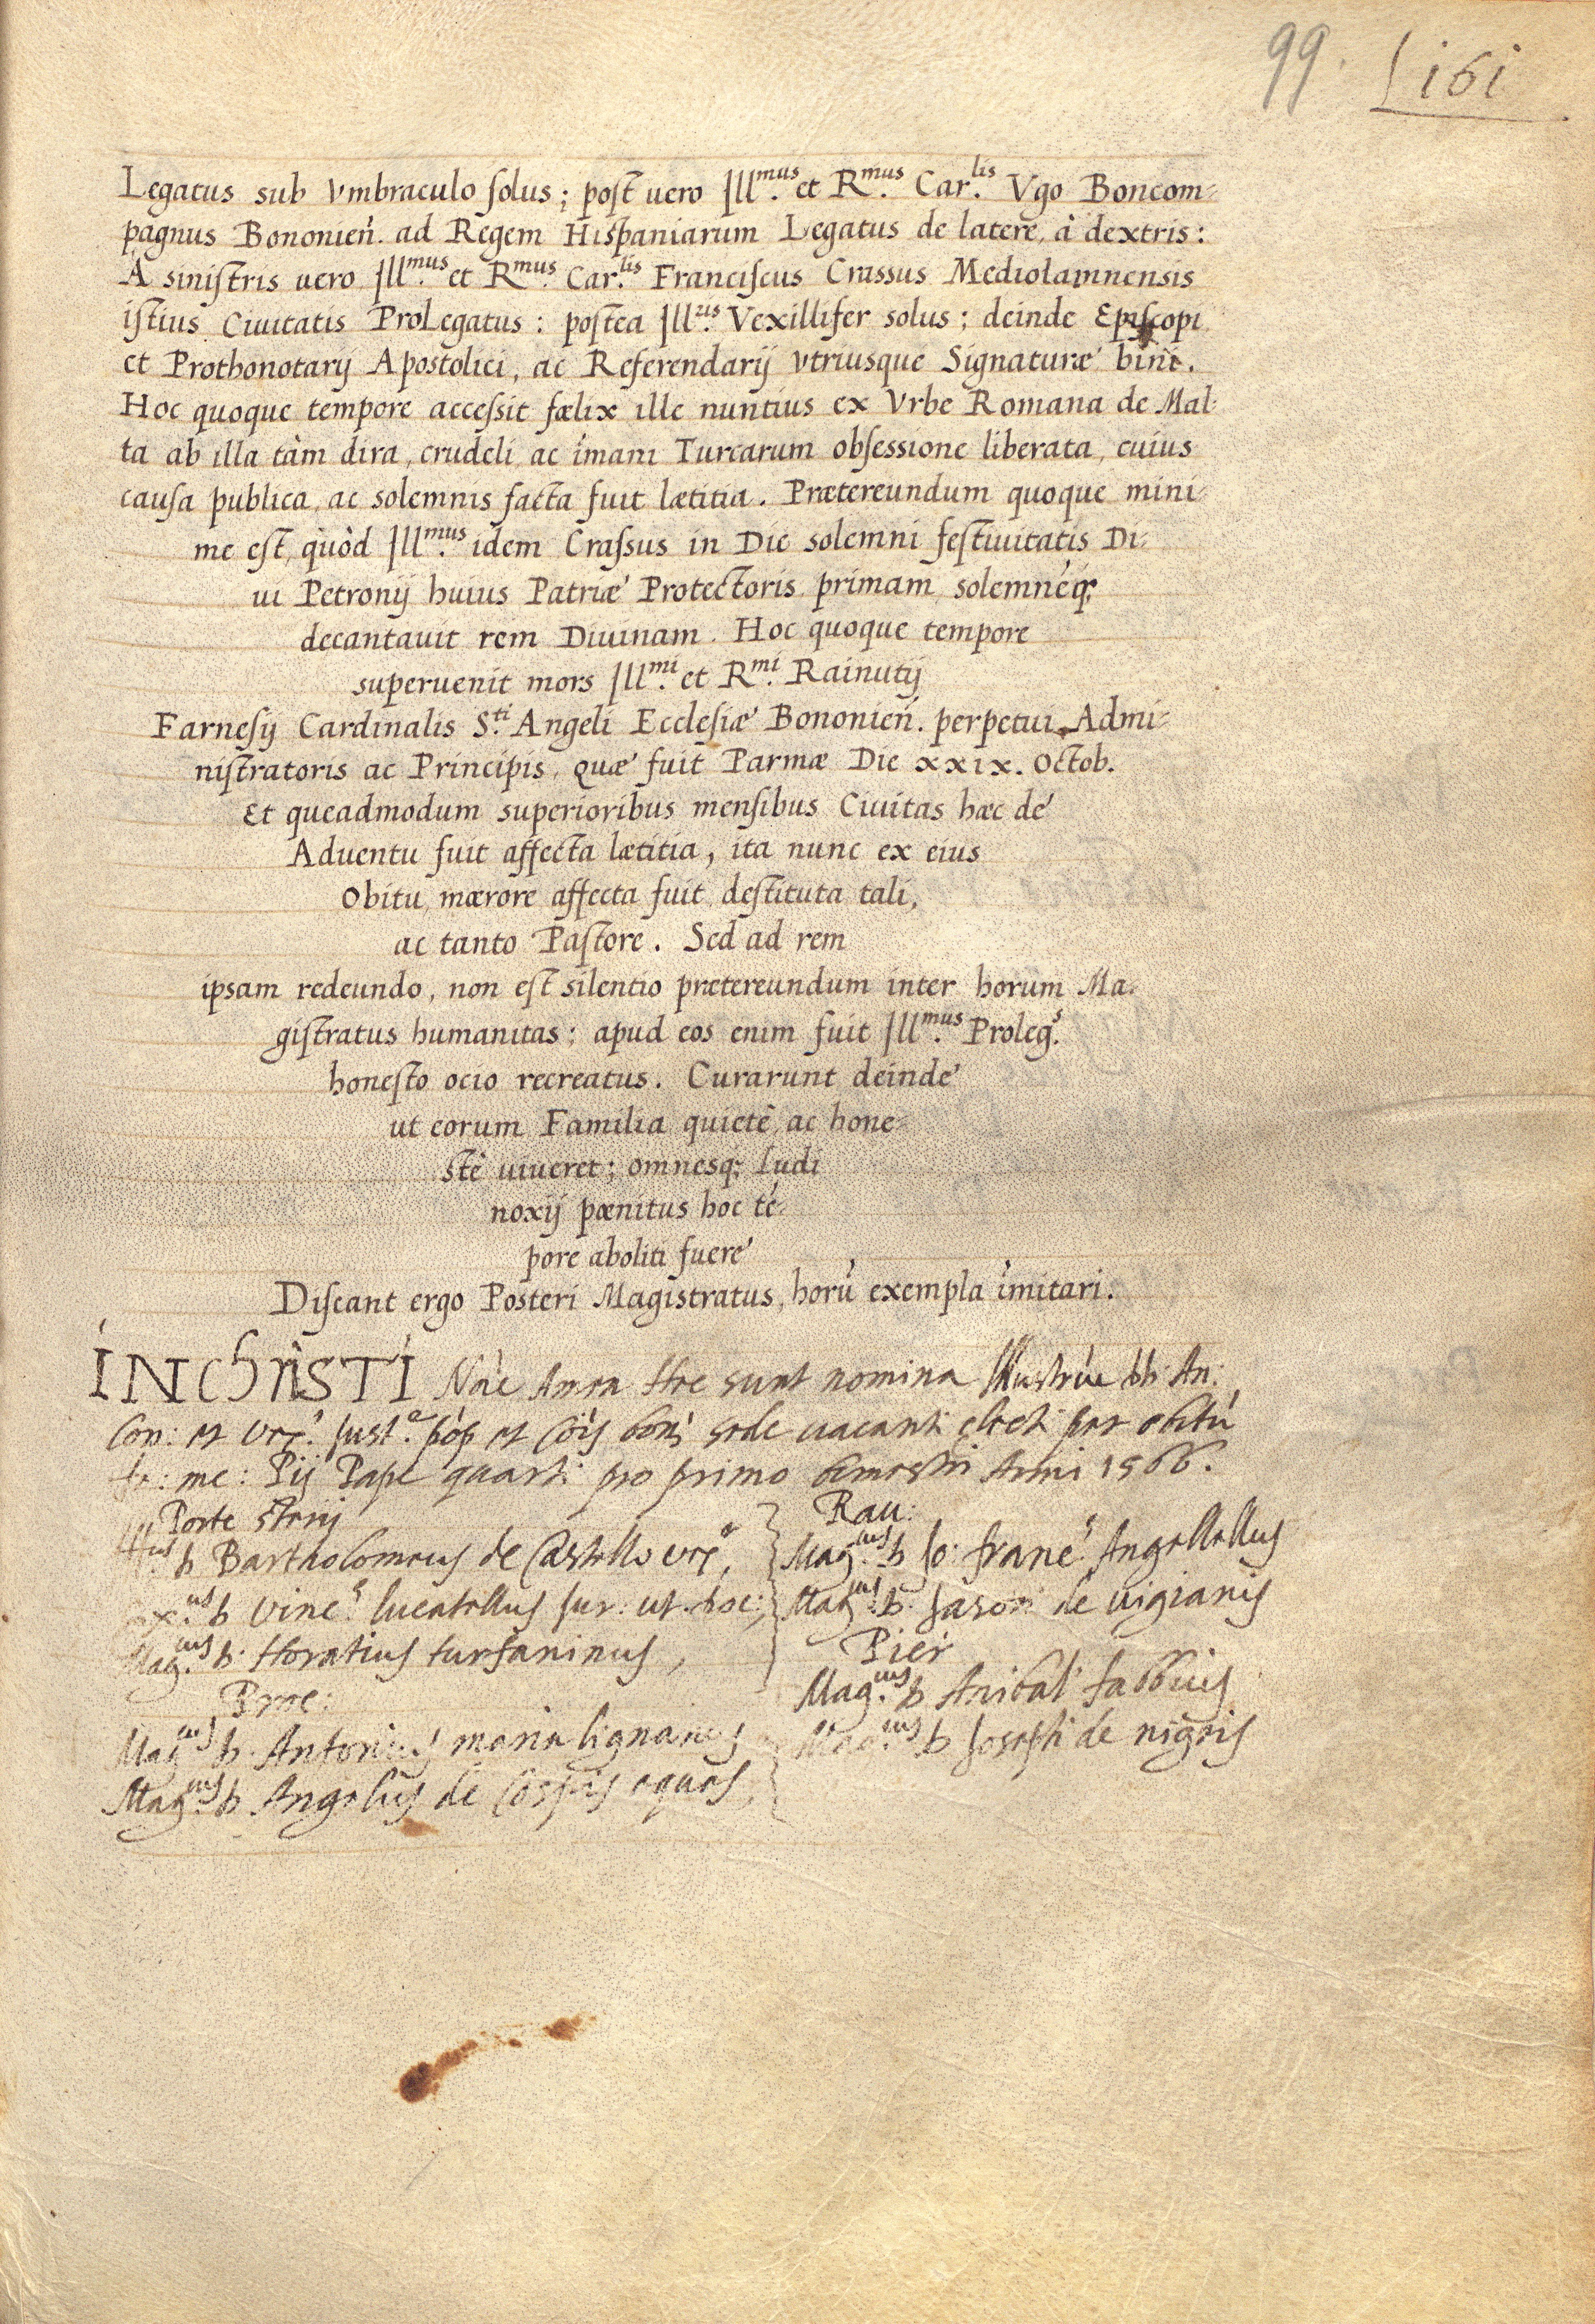 99. 161
Legatus sub Vmbraculo solus; post uero Ill.mus et R.mus Car.lis Vgo Boncom-
pagnus Bononień. ad Regem Hispaniarum Legatus de latere, à dextris:
A sinistris uero Ill.mus et R.mus Car.lis Franciscus Crassus Mediolamnensis
istius Ciuitatis ProLegatus: postea Ill.ris Vexillifer solus; deinde Episcopi
et Prothonotarij Apostolici, ac Referendarij vtriusque Signaturæ bini.
Hoc quoque tempore accessit fælix ille nuntius ex Vrbe Romana de Mal-
ta ab illa tàm dira, crudeli, ac ímani Turcarum obsessione liberata, cuius
causa publica, ac solemnis facta fuit lætitia. Prætereundum quoque mini-
me est, quòd Ill.mus idem Crassus in Die solemni festiuitatis Di-
ui Petronij huius Patriæ Protectoris primam, solemnéq;
decantauit rem Diuinam. Hoc quoque tempore
superuenit mors Ill.mi et R.mi Rainutij
Farnesij Cardinalis S.ti Angeli Ecclesiæ Bononień. perpetui Admi-
nistratoris ac Principis, quæ fuit Parmæ Die xxix. Octob.
Et queadmodum superioribus mensibus Ciuitas hæc de
Aduentu fuit affecta lætitia, ita nunc ex eius
Obitu, mærore affecta fuit, destituta tali,
ac tanto Pastore. Sed ad rem
ipsam redeundo, non est silentio prætereundum inter horum Ma-
gistratus humanitas: apud eos enim fuit Ill.mus Proleg.s
honesto ocio recreatus. Curarunt deinde
ut eorum Familia quietè, ac hone-
stè uiueret; omnesq; ludi
noxij pænitus hoc té-
pore aboliti fuere
Discant ergo Posteri Magistratus, horú exempla ímitari.
IN ChriSTI Nõie Amen Hec sunt nomina Illustriũ DD. An:
Con: et vex.i Just.e pop et cõis bonõ sede uacanti electi per obitú
fe: me: Pij Pape quarti pro primo bimestri Anni 1566.
Porte sterij
Rau:
D Bartholomeus de Castello vex.r,
Mag.cus D Jo: franc.s Angellellus
D Vinc.s lucatellus
Mag.cus D. Jason de uigianis
Mag.cus D. Horatius turfaninus,
Pier
Proc:
Mag.cus D Anibal fabbius
Mag.cus D. Antonius maria lignanus
Mag.cus D Joseph de nigris
Mag.cus D. Angelus de Cospis eques